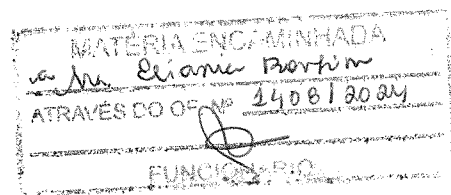 MATÉRIA ENCAMINHADA
a Sra. Eliana Bonfim
ATRAVÉS DO OF. Nº 1408/2024
FUNCIONÁRIO